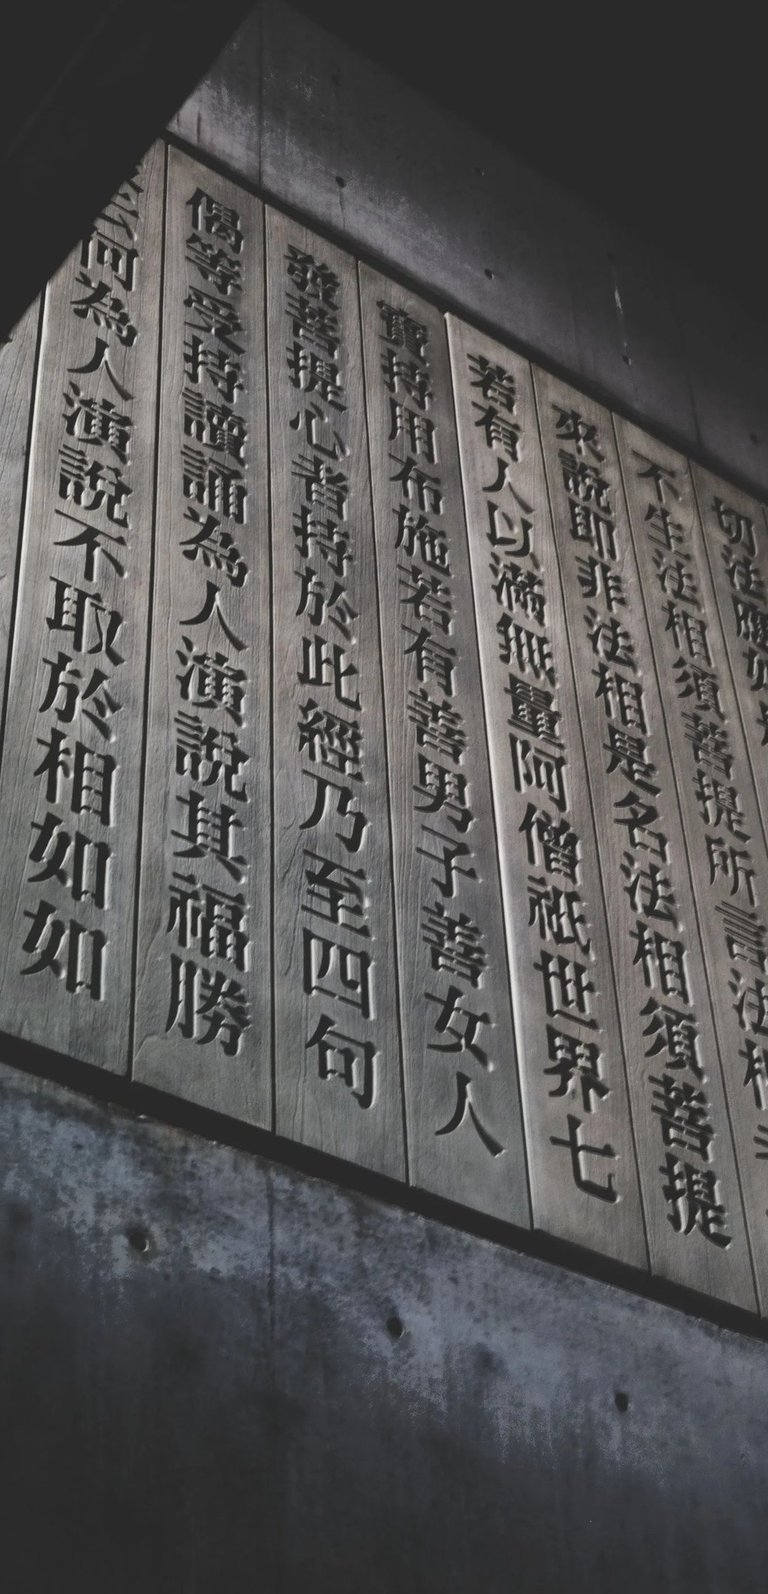 切法應如是
不生法相須菩提所言法相
來說即非法相是名法相須菩提
若有人以滿無量阿僧祇世界七
寶持用布施若有善男子善女人
發菩提心者持於此經乃至四句
偈等受持讀誦為人演說其福勝
云何為人演說不取於相如如